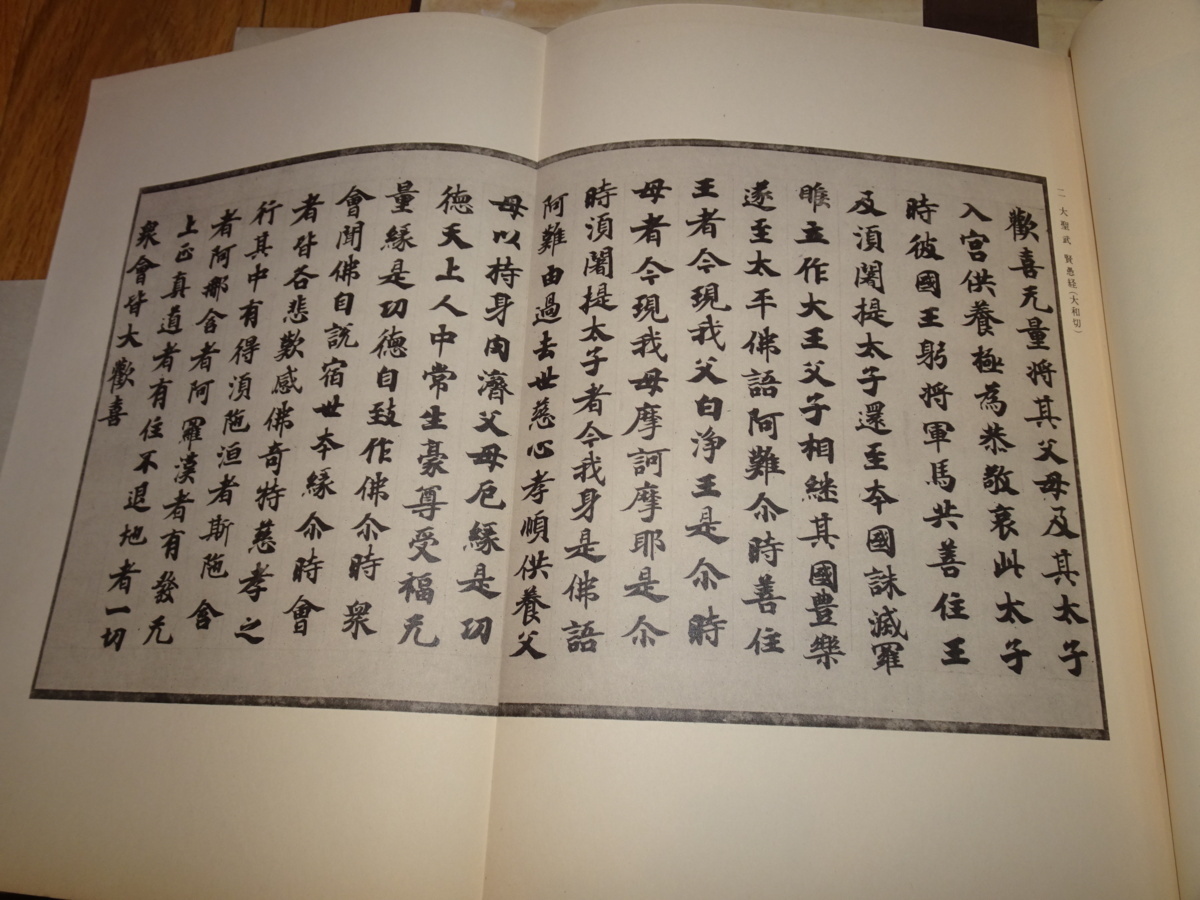 二 大聖武 賢愚経(大和切)
歡喜无量将其父母及其太子
入宮供養極為恭敬哀此太子
時彼國王躬将軍馬共善住王
及須闍提太子還至夲國誅滅羅
睺立作大王父子相継其國豊樂
遂至太平佛語阿難尒時善住
王者今現我父白浄王是尒時
母者今現我母摩訶摩耶是尒
時須闍提太子者今我身是佛語
阿難由過去世慈心孝順供養父
母以持身肉濟父母厄縁是功
徳天上人中常生豪尊受福无
量縁是功徳自致作佛尒時衆
會聞佛自説宿世夲縁尒時會
者皆各悲歎感佛奇特慈孝之
行其中有得須陁洹者斯陁含
者阿那含者阿羅漢者有發无
上正真道者有住不退地者一切
衆會皆大歡喜